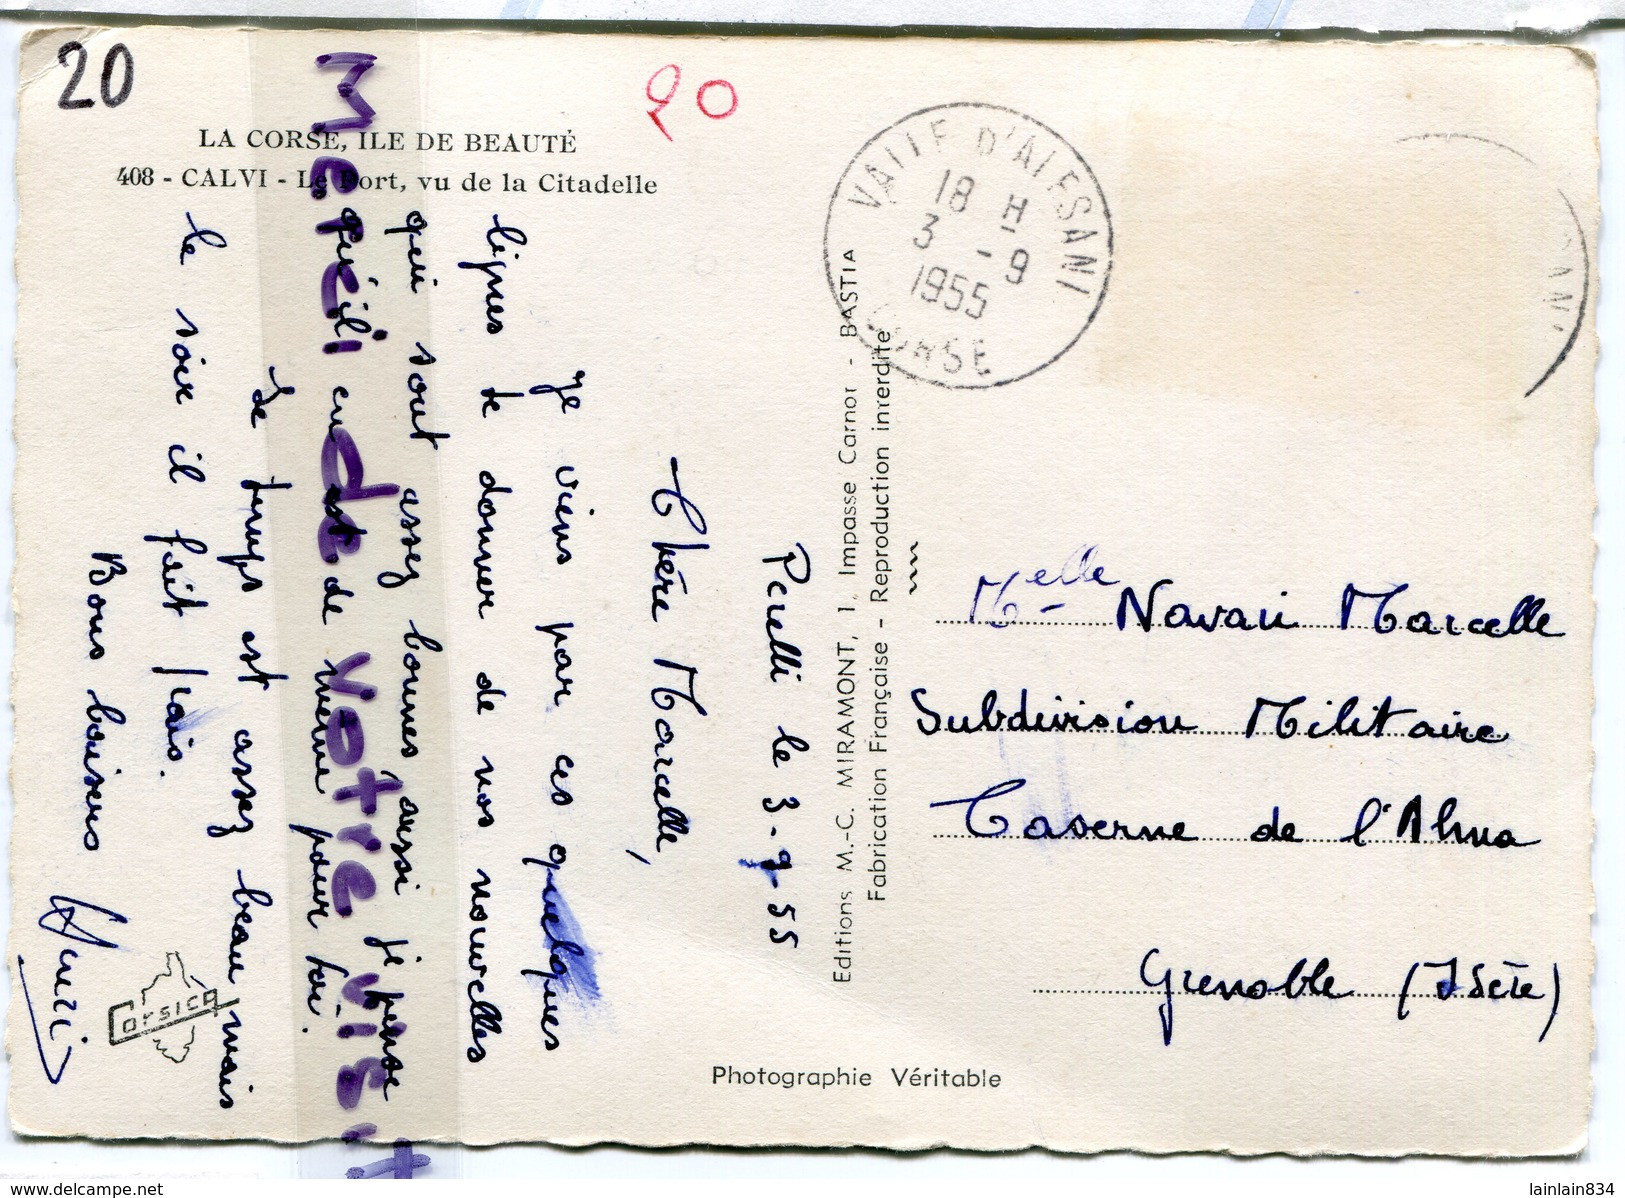 20
20
LA CORSE, ILE DE BEAUTÉ
408 - CALVI - Le Port, vu de la Citadelle
Perelli le 3-9-55
Chère Marcelle,
Je viens par ces quelques
lignes te donner de nos nouvelles
qui sont assez bonnes aussi je pense
qu'il en est de même pour toi.
Le temps est assez beau mais
le soir il fait frais.
Bons baisers
Henri
Merci de votre visit
Corsica
Editions M.-C. MIRAMONT, 1, Impasse Carnot - BASTIA
Fabrication Française - Reproduction interdite
Photographie Véritable
VALLE D'ALESANI
18 H
3 - 9
1955
CORSE
Melle Navari Marcelle
Subdivision Militaire
Caserne de l'Alma
Grenoble (Isère)
https://www.delcampe.net
lainlain834